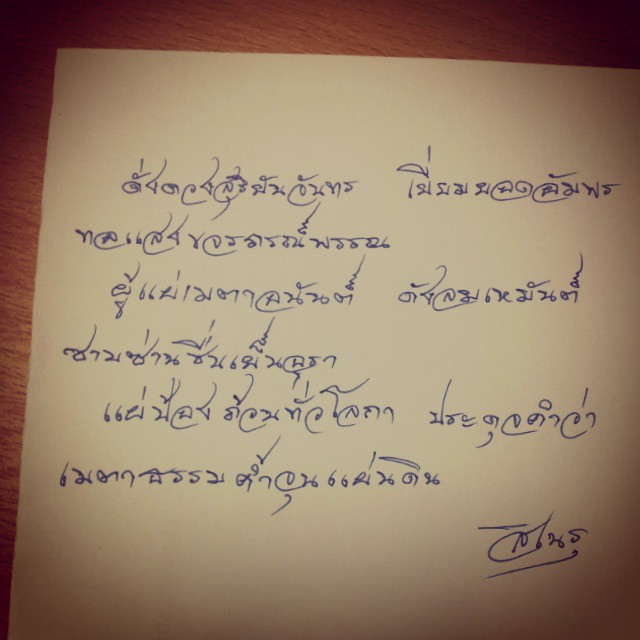 ดั่งดวงสุริยันจันทร เปี่ยมยอดอัมพร
ทอแสงขจรภรณ์พรรณ
ผู้แผ่เมตาอนันต์ ดังลมเหมันต์
ซาบซ่านชื่นเย็นอุรา
แผ่ป้องผ้อนทั่วโลกา ประดุจคำว่า
เมตาธรรมค้ำจุนแผ่นดิน
สิเนรุ